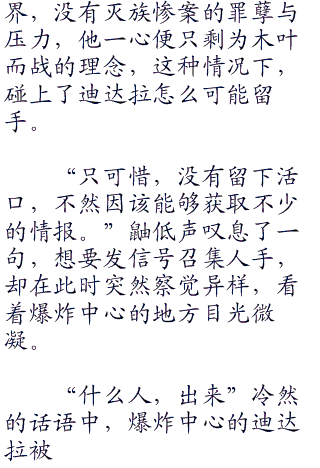 界，没有灭族惨案的罪孽与
压力，他一心便只剩为木叶
而战的理念，这种情况下，
碰上了迪达拉怎么可能留
手。
“只可惜，没有留下活
口，不然因该能够获取不少
的情报。”鼬低声叹息了一
句，想要发信号召集人手，
却在此时突然察觉异样，看
着爆炸中心的地方目光微
凝。
“什么人，出来”冷然
的话语中，爆炸中心的迪达
拉被